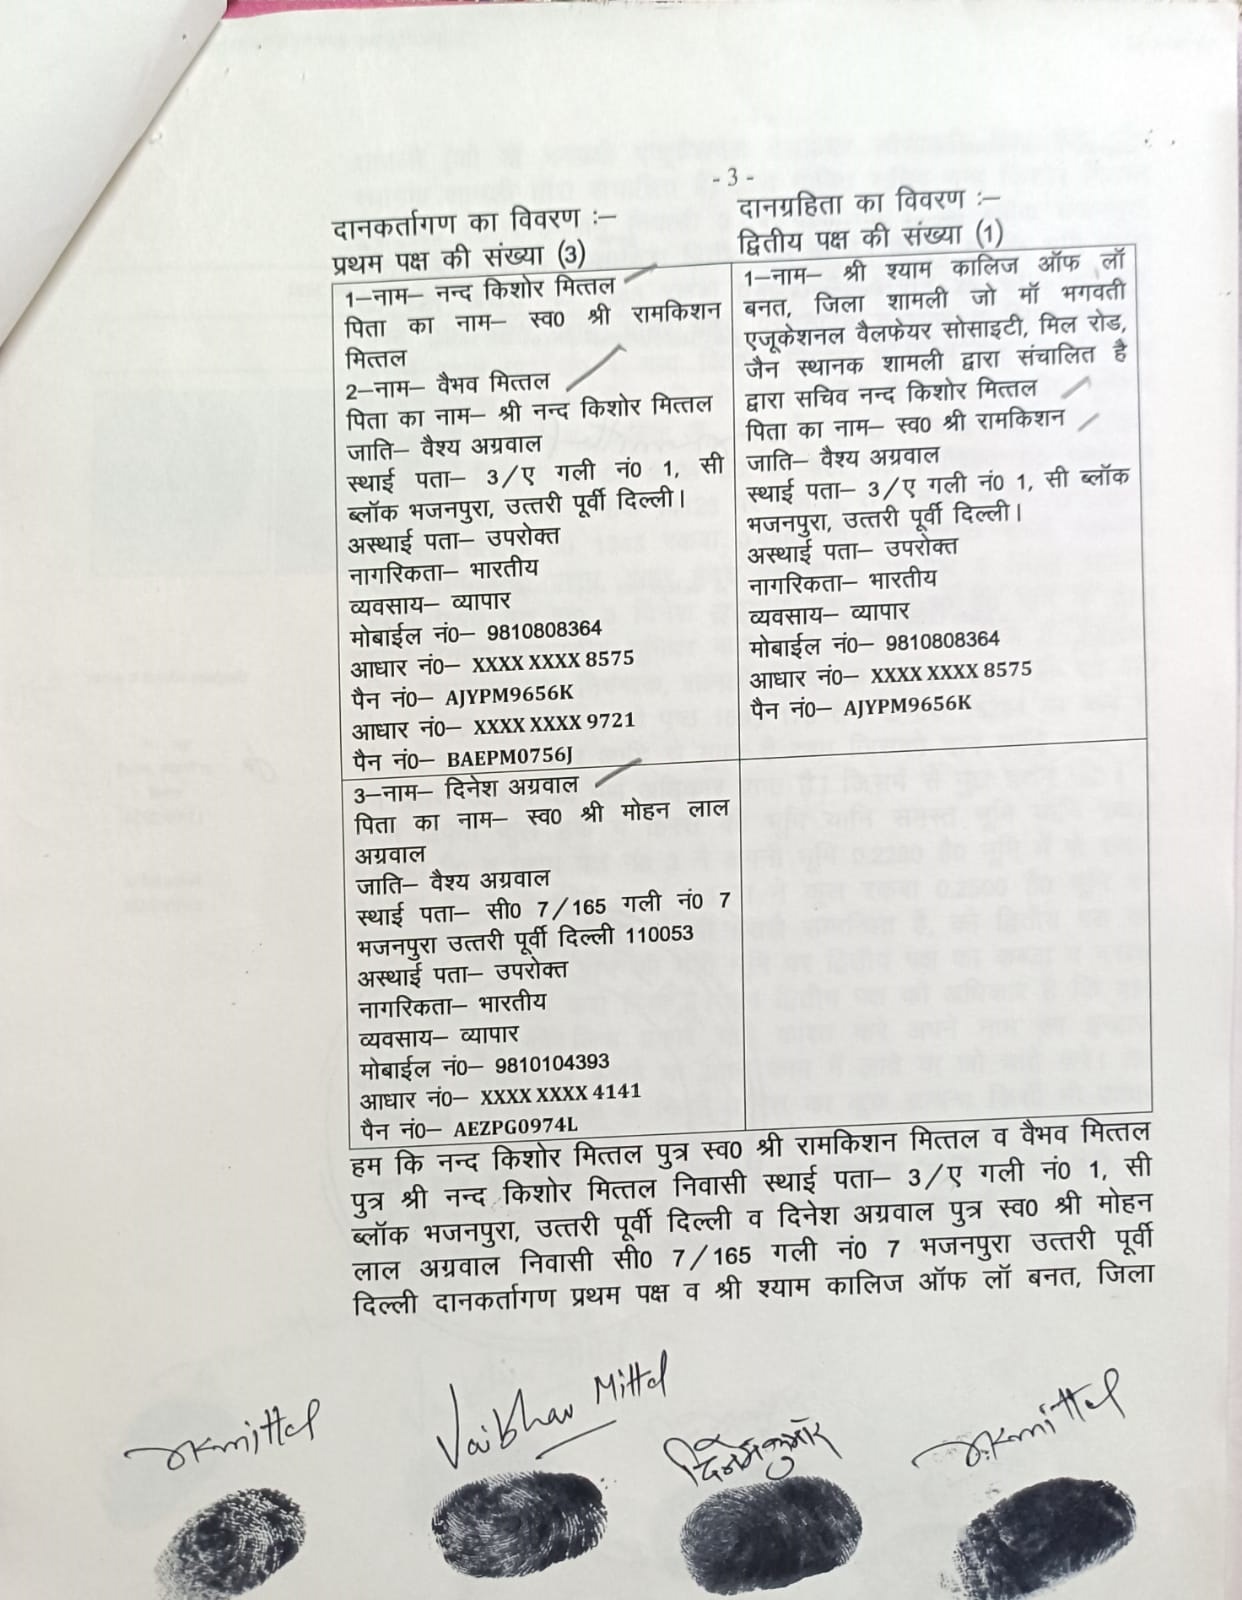 - 3 -
दानकर्तागण का विवरण :–
प्रथम पक्ष की संख्या (3)
दानग्रहिता का विवरण :–
द्वितीय पक्ष की संख्या (1)
1–नाम– नन्द किशोर मित्तल
पिता का नाम– स्व0 श्री रामकिशन
मित्तल
2–नाम– वैभव मित्तल
पिता का नाम– श्री नन्द किशोर मित्तल
जाति– वैश्य अग्रवाल
स्थाई पता– 3/ए गली नं0 1, सी
ब्लॉक भजनपुरा, उत्तरी पूर्वी दिल्ली।
अस्थाई पता– उपरोक्त
नागरिकता– भारतीय
व्यवसाय– व्यापार
मोबाईल नं0– 9810808364
आधार नं0– XXXX XXXX 8575
पैन नं0– AJYPM9656K
आधार नं0– XXXX XXXX 9721
पैन नं0– BAEPM0756J
1–नाम– श्री श्याम कालिज ऑफ लॉ
बनत, जिला शामली जो माँ भगवती
एजूकेशनल वैलफेयर सोसाइटी, मिल रोड,
जैन स्थानक शामली द्वारा संचालित है
द्वारा सचिव नन्द किशोर मित्तल
पिता का नाम– स्व0 श्री रामकिशन
जाति– वैश्य अग्रवाल
स्थाई पता– 3/ए गली नं0 1, सी ब्लॉक
भजनपुरा, उत्तरी पूर्वी दिल्ली।
अस्थाई पता– उपरोक्त
नागरिकता– भारतीय
व्यवसाय– व्यापार
मोबाईल नं0– 9810808364
आधार नं0– XXXX XXXX 8575
पैन नं0– AJYPM9656K
3–नाम– दिनेश अग्रवाल
पिता का नाम– स्व0 श्री मोहन लाल
अग्रवाल
जाति– वैश्य अग्रवाल
स्थाई पता– सी0 7/165 गली नं0 7
भजनपुरा उत्तरी पूर्वी दिल्ली 110053
अस्थाई पता– उपरोक्त
नागरिकता– भारतीय
व्यवसाय– व्यापार
मोबाईल नं0– 9810104393
आधार नं0– XXXX XXXX 4141
पैन नं0– AEZPG0974L
हम कि नन्द किशोर मित्तल पुत्र स्व0 श्री रामकिशन मित्तल व वैभव मित्तल
पुत्र श्री नन्द किशोर मित्तल निवासी स्थाई पता– 3/ए गली नं0 1, सी
ब्लॉक भजनपुरा, उत्तरी पूर्वी दिल्ली व दिनेश अग्रवाल पुत्र स्व0 श्री मोहन
लाल अग्रवाल निवासी सी0 7/165 गली नं0 7 भजनपुरा उत्तरी पूर्वी
दिल्ली दानकर्तागण प्रथम पक्ष व श्री श्याम कालिज ऑफ लॉ बनत, जिला
Vaibhav Mittal
दिनेश कुमार